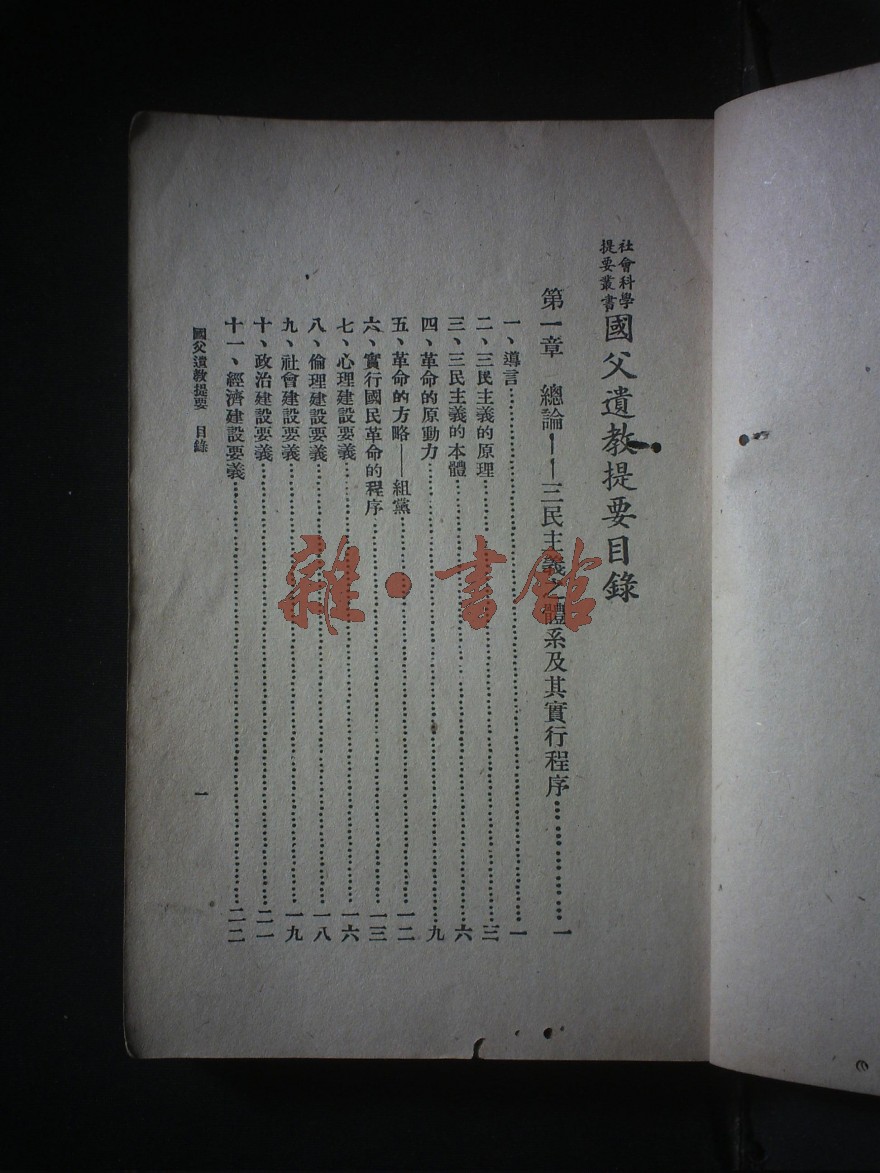 社會科學
提要叢書
國父遺教提要目錄
第一章　總論——三民主義之體系及其實行程序…………………一
一、導言…………………一
二、三民主義的原理…………………三
三、三民主義的本體…………………六
四、革命的原動力…………………九
五、革命的方略——組黨…………………一二
六、實行國民革命的程序…………………一三
七、心理建設要義…………………一六
八、倫理建設要義…………………一八
九、社會建設要義…………………一九
十、政治建設要義…………………二一
十一、經濟建設要義…………………二二
國父遺教提要　目錄
一
雜·書館